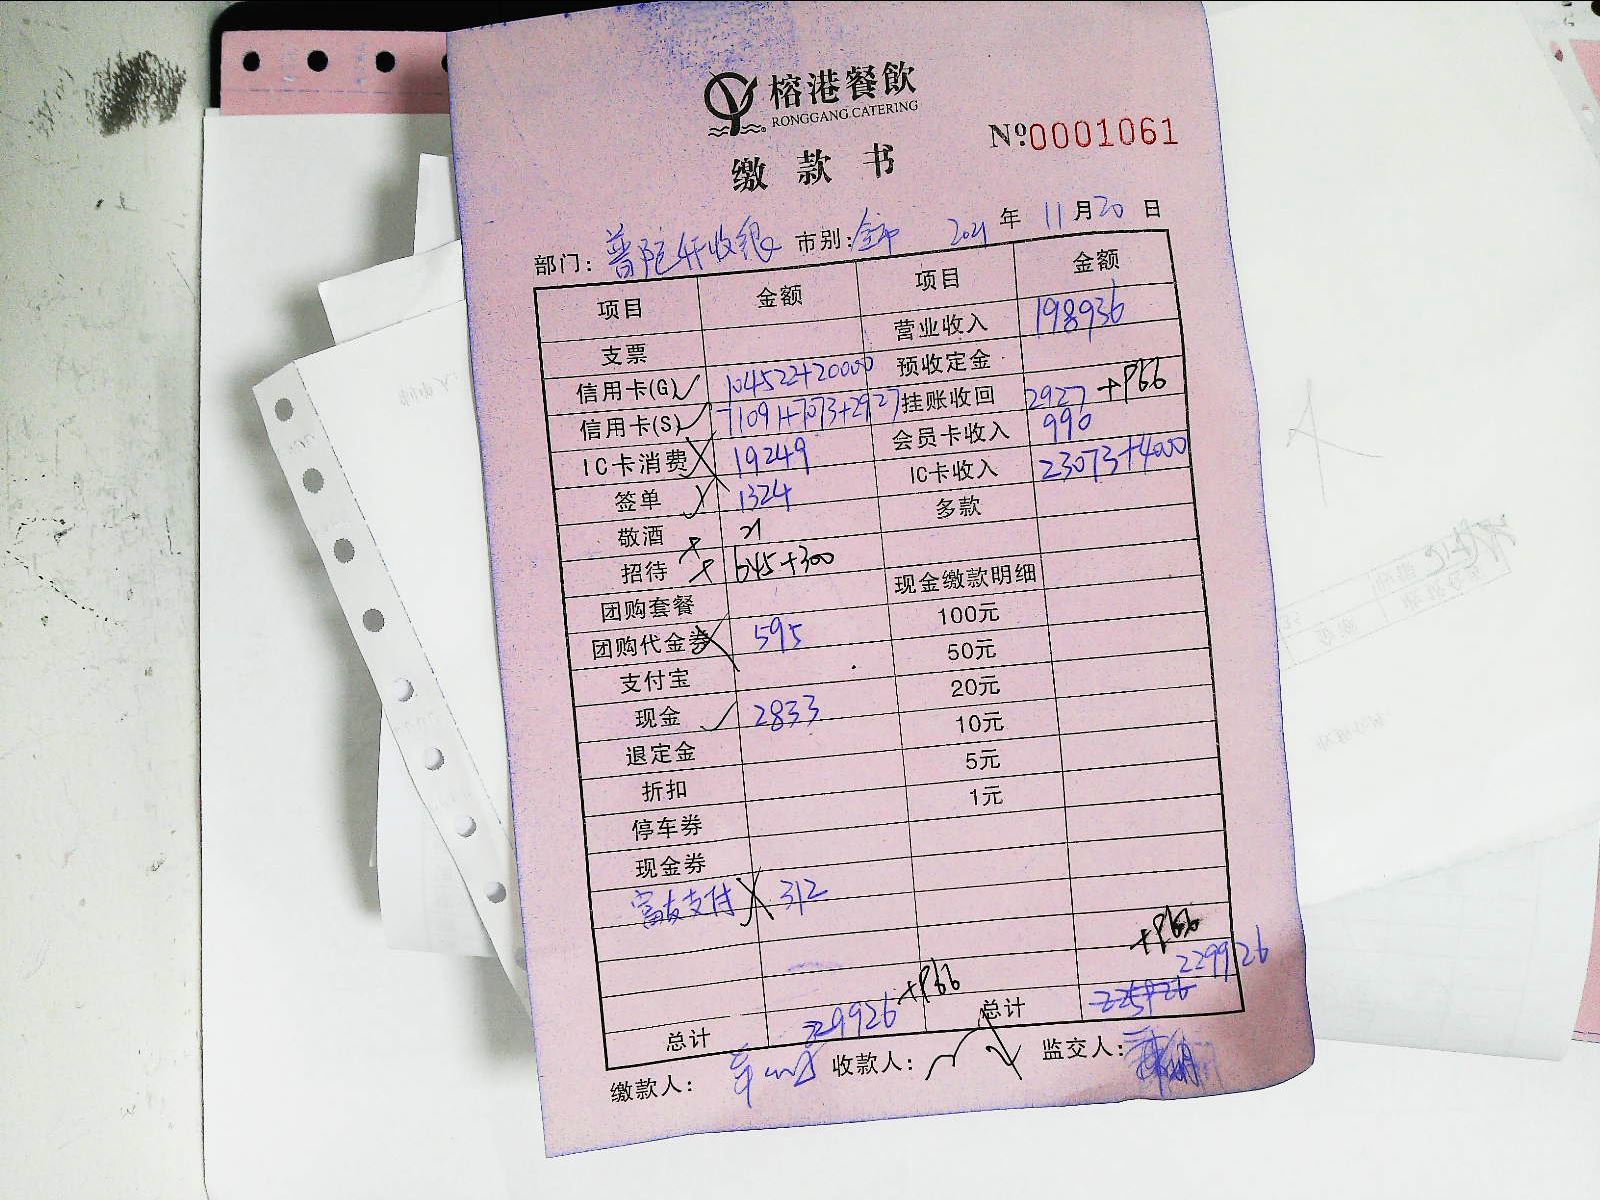 榕港餐飲
RONGGANG CATERING
缴款书 Nº 0001061
部门: 普陀4F收银 市别: 全市 2021年11月20日
项目 金额 项目 金额
营业收入 198936
支票 预收定金
信用卡(G) 104522+20000 挂账收回 2927
信用卡(S) 71091+7073+2927 会员卡收入 990
IC卡消费 19249 IC卡收入 23073+4000
签单 1324 多款
敬酒
招待 645+300 现金缴款明细
团购套餐 100元
团购代金券 595 50元
支付宝 20元
现金 2833 10元
退定金 5元
折扣 1元
停车券
现金券
富友支付 312
总计 229926 总计 229926
缴款人: 收款人: 监交人: